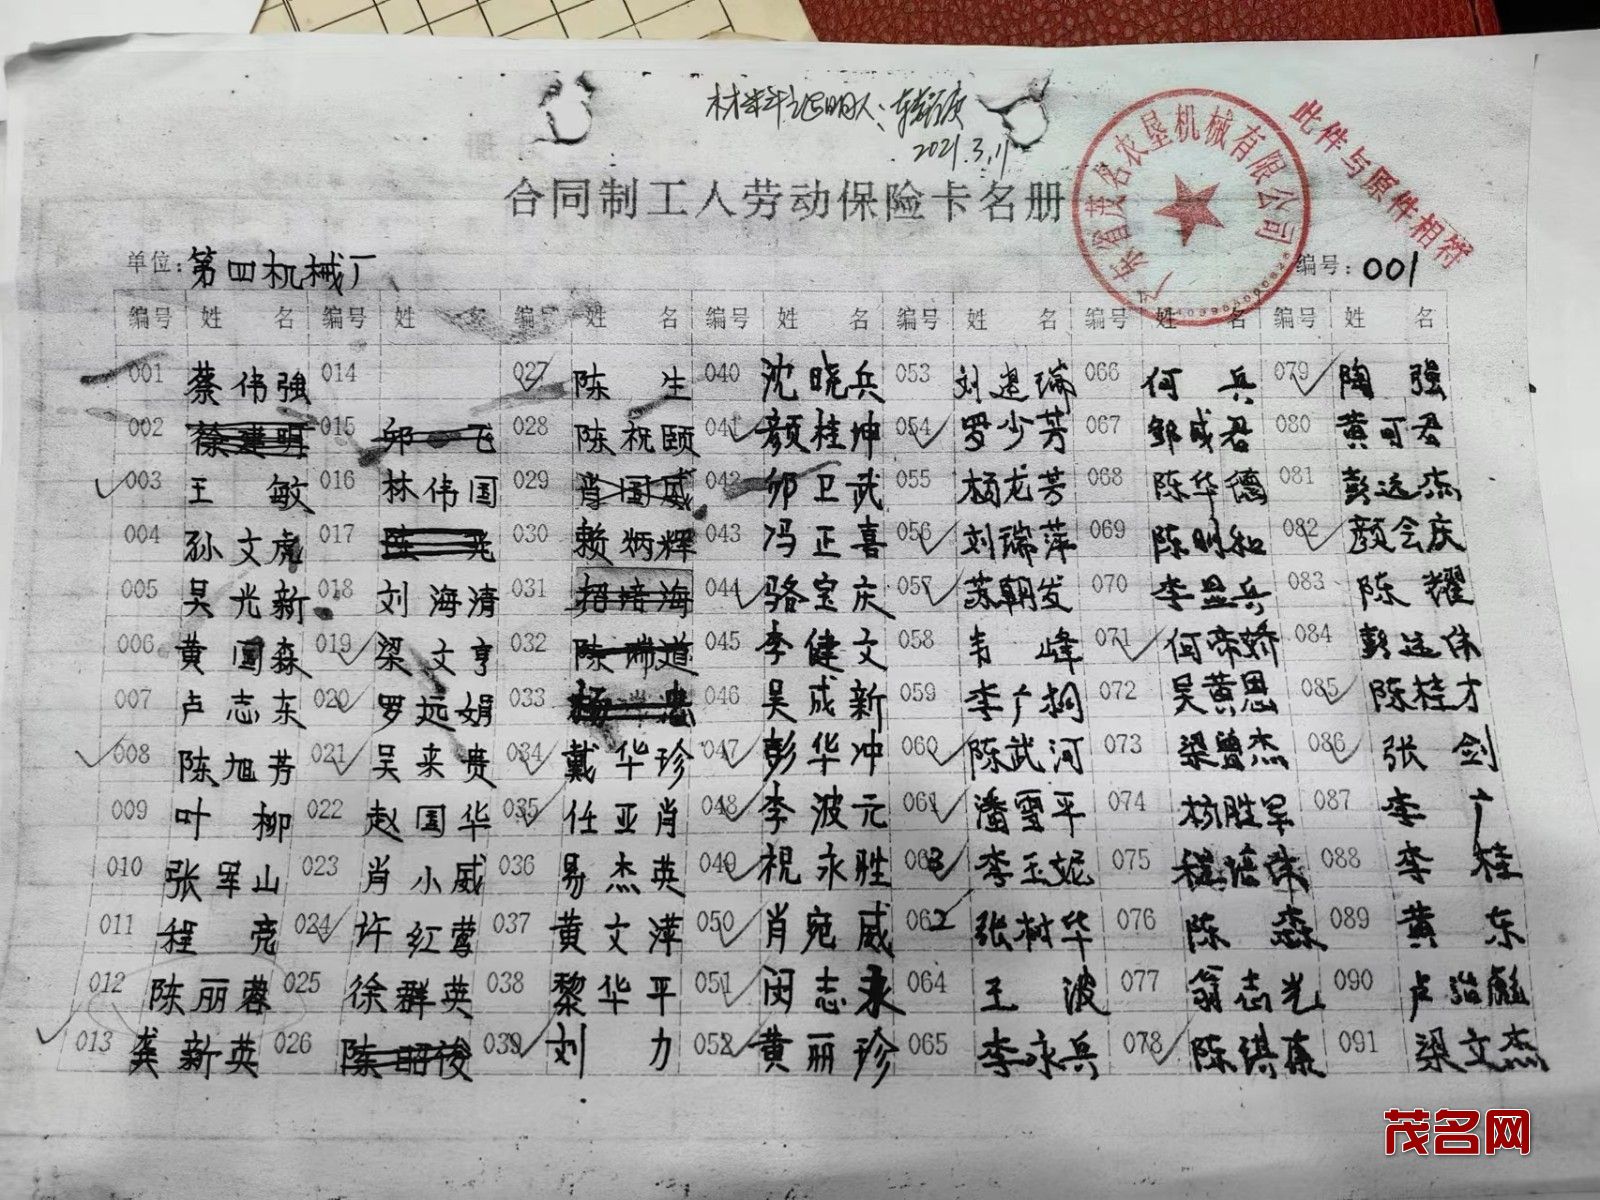 材料证明人:
2021.3.11
合同制工人劳动保险卡名册
广东省茂名农垦机械有限公司
此件与原件相符
单位:第四机械厂 编号:001
编号 姓 名 编号 姓 名 编号 姓 名 编号 姓 名 编号 姓 名 编号 姓 名 编号 姓 名
001 蔡伟强 014 027 陈生 040 沈晓兵 053 刘建瑞 066 何兵 079 陶强
002 徐建明 015 邬飞 028 陈祝颐 041 颜桂坤 054 罗少芳 067 邹成君 080 黄可君
003 王敏 016 林伟国 029 肖国威 042 卯卫武 055 杨龙芳 068 陈华德 081 彭远杰
004 孙文彪 017 陈光 030 赖炳辉 043 冯正喜 056 刘瑞萍 069 陈明和 082 颜会庆
005 吴光新 018 刘海清 031 招培海 044 骆宝庆 057 苏朝发 070 李显兵 083 陈耀
006 黄国森 019 梁文亨 032 陈瑞道 045 李健文 058 韦峰 071 何帝娇 084 彭远伟
007 卢志东 020 罗远娟 033 杨忠 046 吴成新 059 李广桐 072 吴黄恩 085 陈桂才
008 陈旭芳 021 吴来贵 034 戴华珍 047 彭华冲 060 陈武河 073 梁曾杰 086 张剑
009 叶柳 022 赵国华 035 任亚肖 048 李波元 061 潘雪平 074 杨胜军 087 李广
010 张军山 023 肖小威 036 易杰英 049 祝永胜 063 李玉妮 075 程培伟 088 李桂
011 程亮 024 许红莺 037 黄文萍 050 肖宛威 062 张树华 076 陈森 089 黄东
012 陈丽蓉 025 徐群英 038 黎华平 051 闵志永 064 王波 077 翁志光 090 卢治彪
013 龚新英 026 陈昭俊 039 刘力 052 黄丽珍 065 李永兵 078 陈琪东 091 梁文杰
茂名网